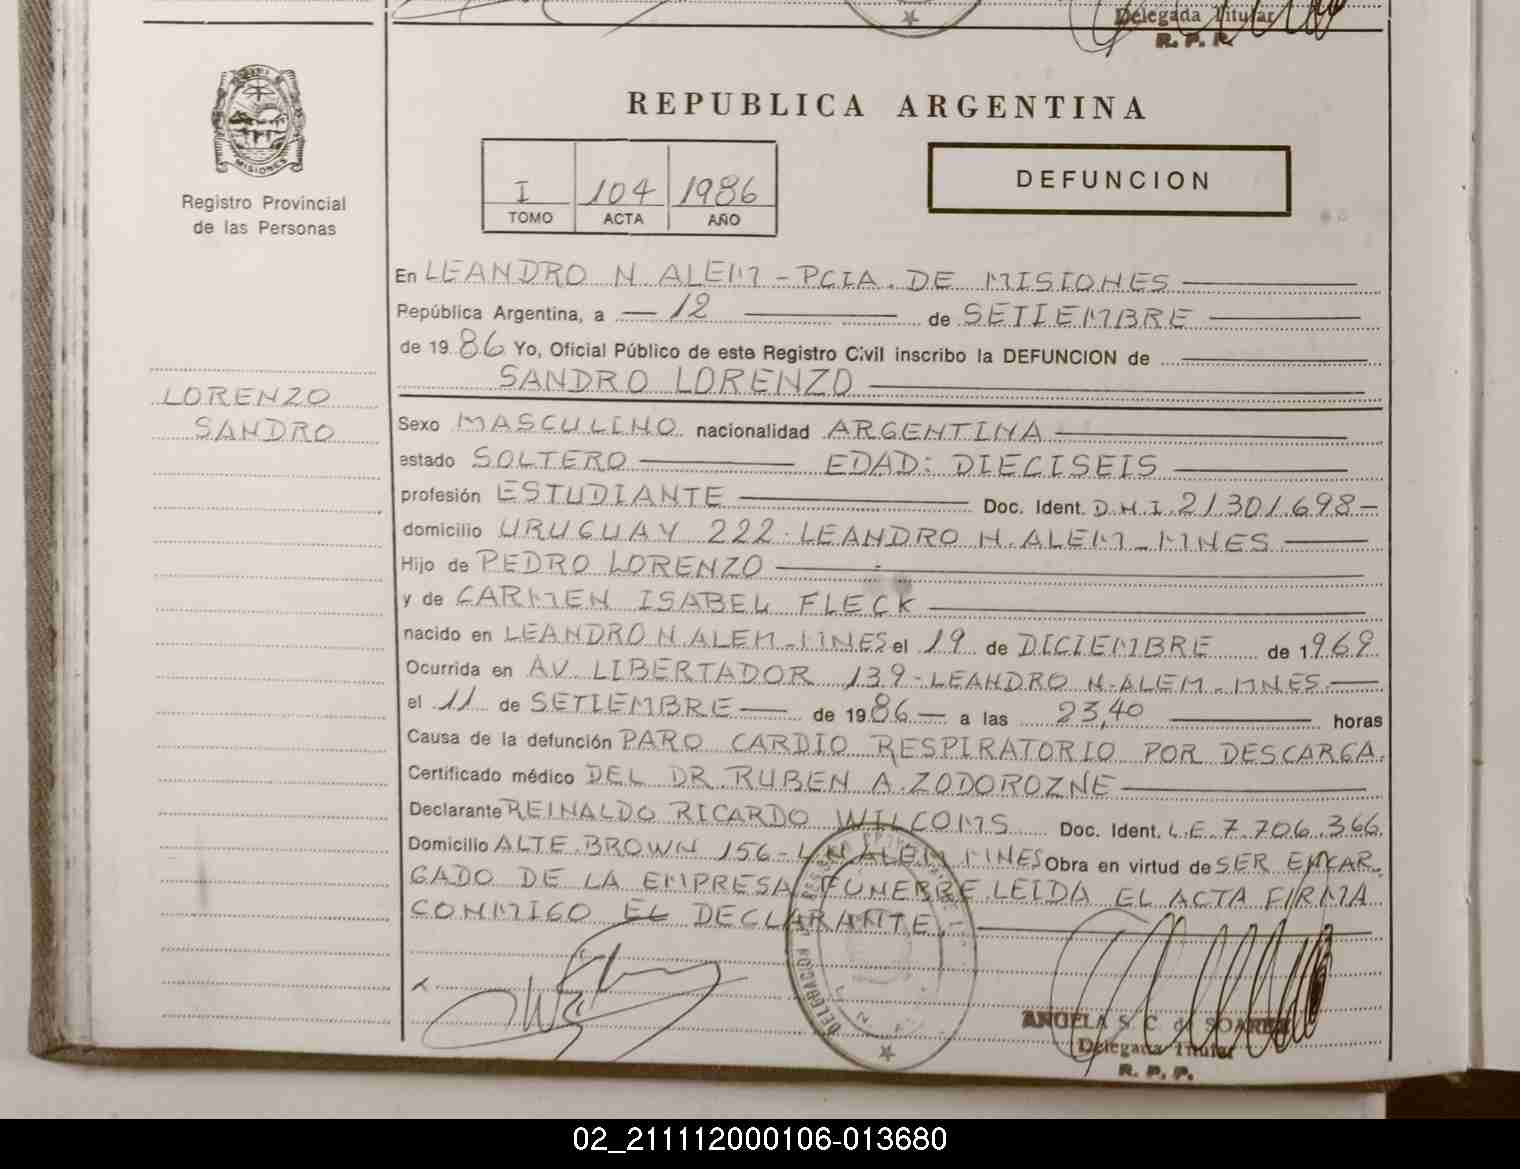 Delegada Titular
R. P. P.
MISIONES
Registro Provincial
de las Personas
LORENZO
SANDRO
REPUBLICA ARGENTINA
I 104 1986
TOMO ACTA AÑO
DEFUNCION
En LEANDRO N. ALEM - PCIA. DE MISIONES
República Argentina, a 12 de SETIEMBRE
de 1986 Yo, Oficial Público de este Registro Civil inscribo la DEFUNCION de
SANDRO LORENZO
Sexo MASCULINO nacionalidad ARGENTINA
estado SOLTERO EDAD: DIECISEIS
profesión ESTUDIANTE Doc. Ident. D.N.I. 21301.698-
domicilio URUGUAY 222. LEANDRO N. ALEM - MNES
Hijo de PEDRO LORENZO
y de CARMEN ISABEL FLECK
nacido en LEANDRO N. ALEM - MNES el 19 de DICIEMBRE de 1969
Ocurrida en AV. LIBERTADOR 139 - LEANDRO N. ALEM - MNES
el 11 de SETIEMBRE de 1986 a las 23,40 horas
Causa de la defunción PARO CARDIO RESPIRATORIO POR DESCARGA.
Certificado médico DEL DR. RUBEN A. ZODOROZNE
Declarante REINALDO RICARDO WILCOMS Doc. Ident. L.E. 7.706.366
Domicilio ALTE. BROWN 156 - L.N. ALEM MNES Obra en virtud de SER ENCAR
GADO DE LA EMPRESA FUNEBRE. LEIDA EL ACTA FIRMA
CONMIGO EL DECLARANTE.-
ANGELA S. C. de SOAREZ
Delegada Titular
R. P. P.
02_211112000106-013680